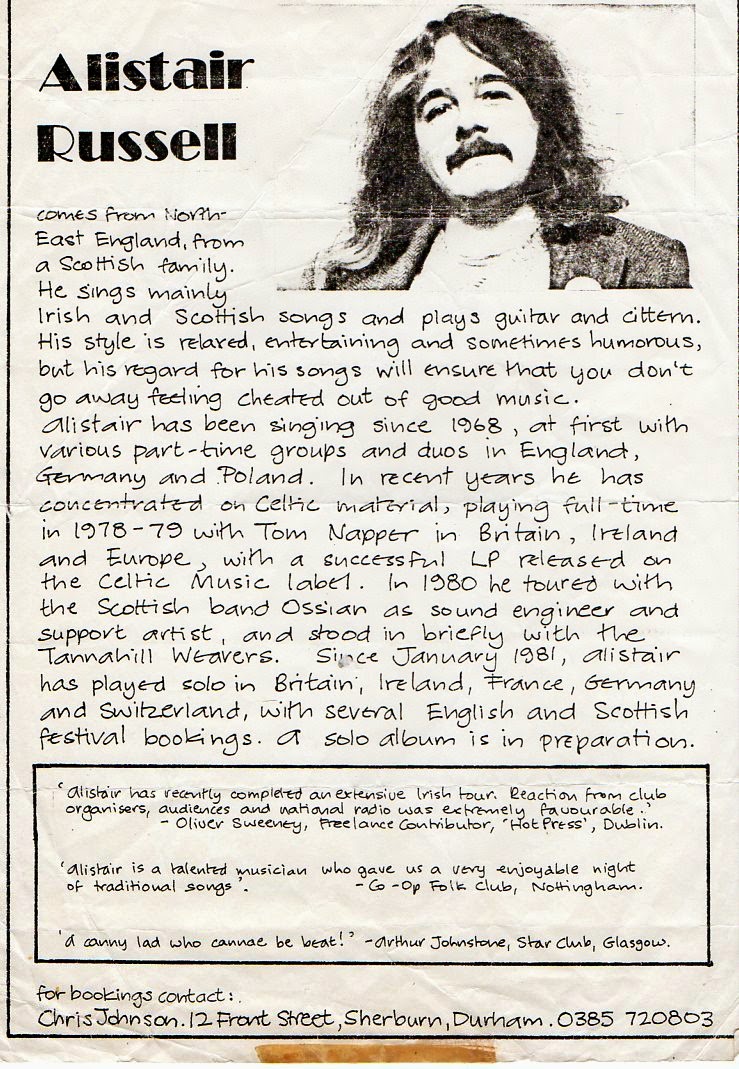 Alistair
Russell
comes from North-
East England, from
a Scottish family.
He sings mainly
Irish and Scottish songs and plays guitar and cittern.
His style is relaxed, entertaining and sometimes humorous,
but his regard for his songs will ensure that you don't
go away feeling cheated out of good music.
Alistair has been singing since 1968, at first with
various part-time groups and duos in England,
Germany and Poland. In recent years he has
concentrated on Celtic material, playing full-time
in 1978-79 with Tom Napper in Britain, Ireland
and Europe, with a successful LP released on
the Celtic Music label. In 1980 he toured with
the Scottish band Ossian as sound engineer and
support artist, and stood in briefly with the
Tannahill Weavers. Since January 1981, Alistair
has played solo in Britain, Ireland, France, Germany
and Switzerland, with several English and Scottish
festival bookings. A solo album is in preparation.
'Alistair has recently completed an extensive Irish tour. Reaction from club
organisers, audiences and national radio was extremely favourable.'
- Oliver Sweeney, Freelance Contributor, 'Hot Press', Dublin.
'Alistair is a talented musician who gave us a very enjoyable night
of traditional songs'. - Co-Op Folk Club, Nottingham.
'A canny lad who cannae be beat!' - Arthur Johnstone, Star Club, Glasgow.
for bookings contact:
Chris Johnson. 12 Front Street, Sherburn, Durham. 0385 720803